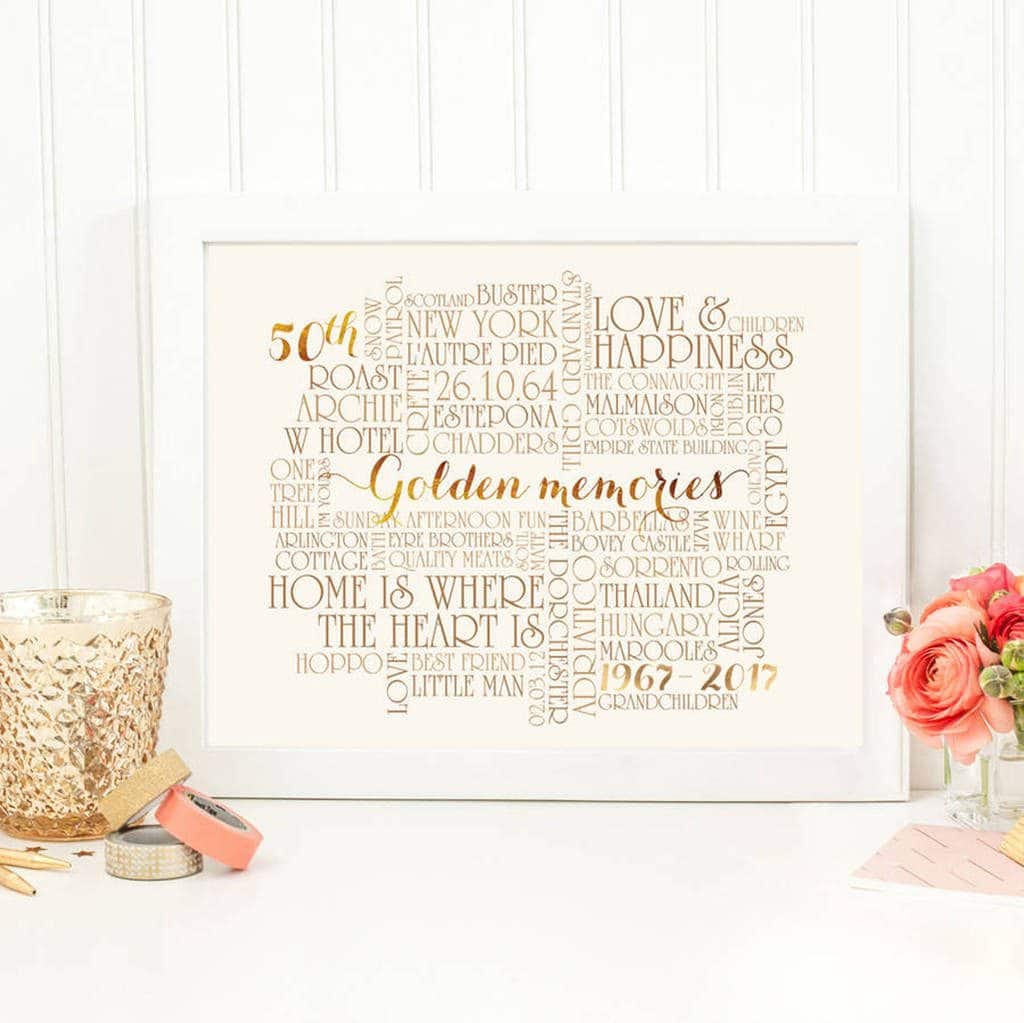 50th
SNOW
PATROL
SCOTLAND
BUSTER
NEW YORK
L'AUTRE PIED
26.10.64
ESTEPONA
CHADDERS
CRETE
STANDARD GRILL
LOVE &
CHILDREN
HAPPINESS
ROAST
ARCHIE
W HOTEL
THE CONNAUGHT
MALMAISON
COTSWOLDS
EMPIRE STATE BUILDING
NOBU
DUBLIN
LET
HER
GO
EGYPT
ONE
TREE
HILL
I'M YOURS
Golden memories
SUNDAY AFTERNOON FUN
ARLINGTON
COTTAGE
BATH
EYRE BROTHERS
QUALITY MEATS
SOUL
MATE
THE DORCHESTER
BARBELLAS
BOVEY CASTLE
MAZE
WINE
WHARF
SORRENTO
ROLLING
HOME IS WHERE
THE HEART IS
THAILAND
HUNGARY
MAROOLES
VICTIV
JONES
ADRIATICO
HOPPO
LOVE
BEST FRIEND
LITTLE MAN
02.03.12
1967-2017
GRANDCHILDREN